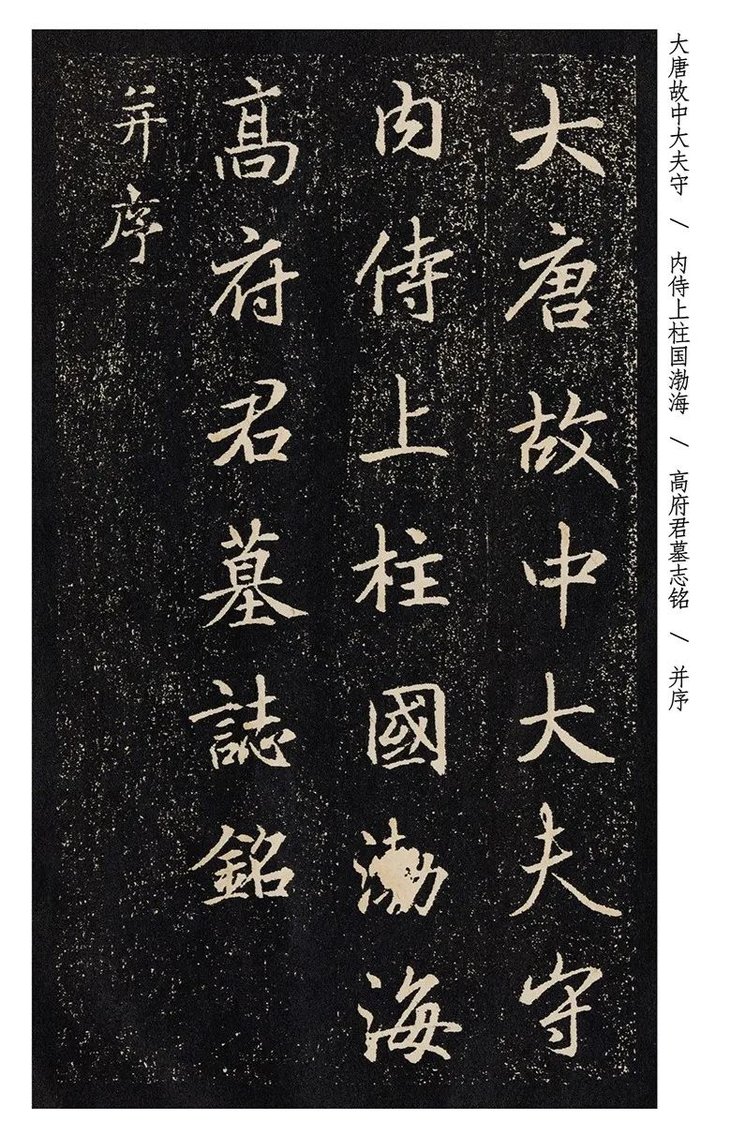 大唐故中大夫守
内侍上柱國渤海
高府君墓誌銘
并序
大唐故中大夫守 / 内侍上柱国渤海 / 高府君墓志铭 / 并序